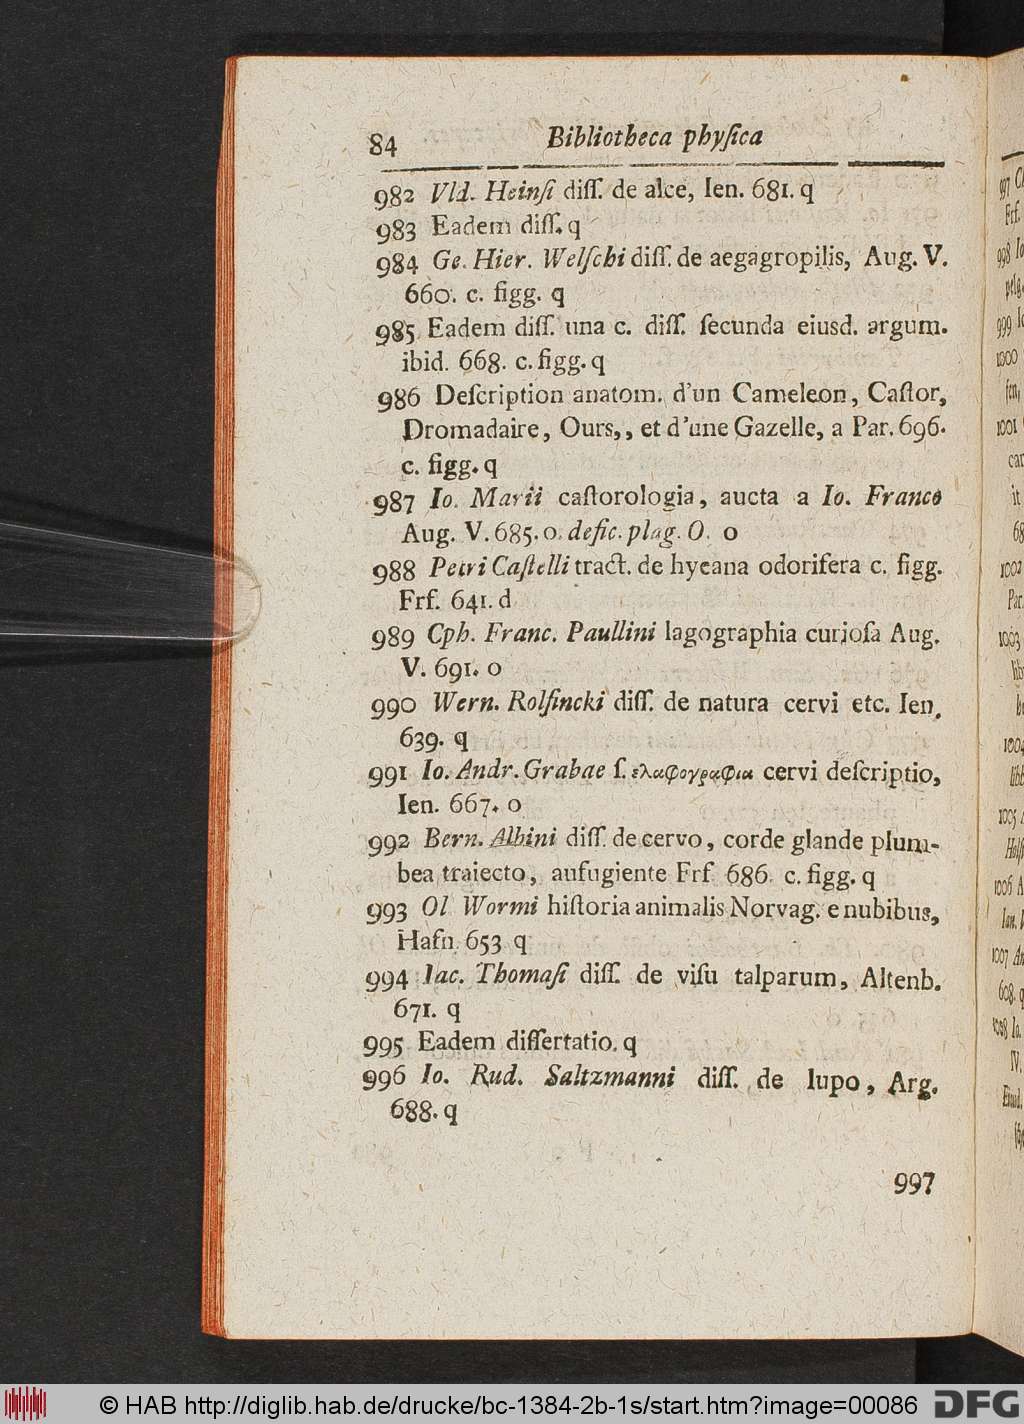 84 Bibliotheca phyſica
982 Vld. Heinſi diſſ. de alce, Ien. 681. q
983 Eadem diſſ. q
984 Ge. Hier. Welſchi diſſ. de aegagropilis, Aug. V.
660. c. figg. q
985 Eadem diſſ. una c. diſſ. ſecunda eiusd. argum.
ibid. 668. c. figg. q
986 Deſcription anatom. d'un Cameleon, Caſtor,
Dromadaire, Ours,, et d'une Gazelle, a Par. 696.
c. figg. q
987 Io. Marii caſtorologia, aucta a Io. Franco
Aug. V. 685. o. defic. plag. O. o
988 Petri Caſtelli tract. de hyeana odorifera c. figg.
Frf. 641. d
989 Cph. Franc. Paullini lagographia curioſa Aug.
V. 691. o
990 Wern. Rolfincki diſſ. de natura cervi etc. Ien.
639. q
991 Io. Andr. Grabae ſ. ελαφογραφια cervi deſcriptio,
Ien. 667. o
992 Bern. Albini diſſ. de cervo, corde glande plum-
bea traiecto, aufugiente Frf. 686. c. figg. q
993 Ol Wormi hiſtoria animalis Norvag. e nubibus,
Hafn. 653 q
994 Iac. Thomaſi diſſ. de viſu talparum, Altenb.
671. q
995 Eadem diſſertatio. q
996 Io. Rud. Saltzmanni diſſ. de lupo, Arg.
688. q
997
997
Frf.
998 Io
999
1000
1001
car
it
68
1002
Par.
1003
1004
1005
1006 A
1007 An
608. q
IV.
© HAB http://diglib.hab.de/drucke/bc-1384-2b-1s/start.htm?image=00086
DFG